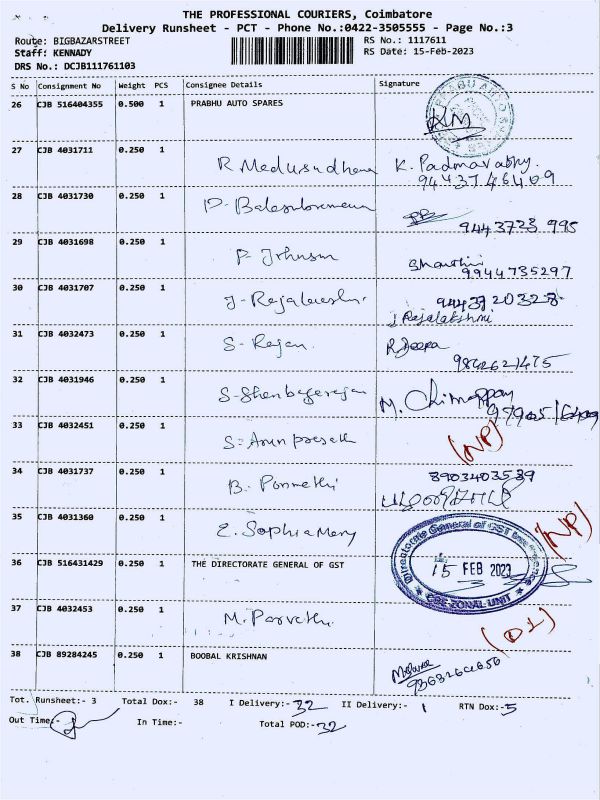 THE PROFESSIONAL COURIERS, Coimbatore
Delivery Runsheet - PCT - Phone No.:0422-3505555 - Page No.:3
Route: BIGBAZARSTREET RS No.: 1117611
Staff: KENNADY RS Date: 15-Feb-2023
DRS No.: DCJB111761103
S No Consignment No Weight PCS Consignee Details Signature
26 CJB 516404355 0.500 1 PRABHU AUTO SPARES
27 CJB 4031711 0.250 1 R Medusudhana K. Padmavathy.
9443746409
28 CJB 4031730 0.250 1 P- Balasubramana
9443723 995
29 CJB 4031698 0.250 1 P- Johnson Shanthi
9944735297
30 CJB 4031707 0.250 1 J- Rajalakshmi. 9443920328
J Rajalakshmi
31 CJB 4032473 0.250 1 S- Rajan. R Deepa
9842621475
32 CJB 4031946 0.250 1 S-Shenbagarajan M. Chinnappan
33 CJB 4032451 0.250 1 S- Arun prasath (NP)
34 CJB 4031737 0.250 1 B. Ponmathi 8903403539
35 CJB 4031360 0.250 1 E. Sophia Mery (NP)
36 CJB 516431429 0.250 1 THE DIRECTORATE GENERAL OF GST Directorate General of GST Intelligence
15 FEB 2023
CBE ZONAL UNIT
37 CJB 4032453 0.250 1 M. Parvathi (D1)
38 CJB 89284245 0.250 1 BOOBAL KRISHNAN
Tot. Runsheet:- 3 Total Dox:- 38 I Delivery:- 32 II Delivery:- 1 RTN Dox:- 5
Out Time:- In Time:- Total POD:- 32